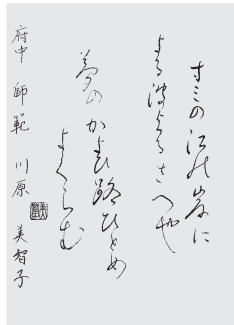 すみの江の岸に
よる波よるさへや
夢のかよひ路ひとめ
よくらむ
府中 師範 川原 美智子